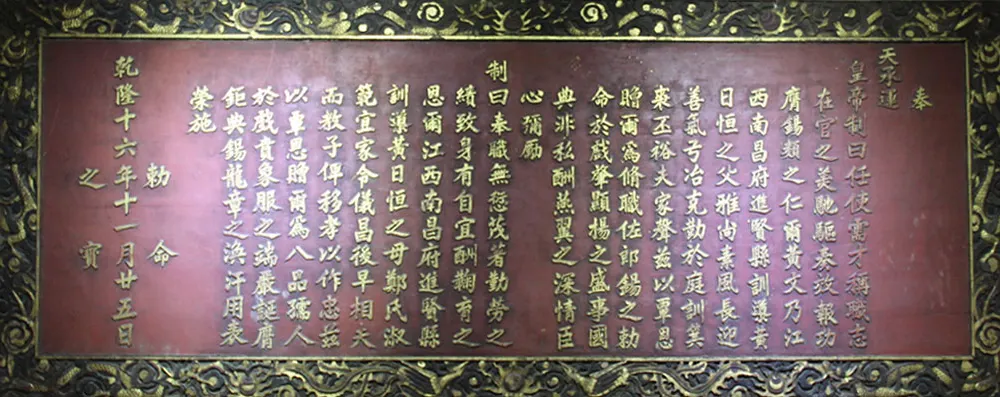 奉
天承運
皇帝制曰任使需才稱職志
在官之美馳驅奏效報功
膺錫類之仁爾黃文乃江
西南昌府進賢縣訓導黃
日恒之父雅尚素風長迎
善氣弓冶克勤於庭訓箕
裘丕裕夫家聲茲以覃恩
贈爾為脩職佐郎錫之勅
命於戲肇顯揚之盛事國
典非私酬燕翼之深情臣
心彌勵
制曰奉職無愆茂著勤勞之
績致身有自宜酬鞠育之
恩爾江西南昌府進賢縣
訓導黃日恒之母鄭氏淑
範宜家令儀昌後早相夫
而教子俾移孝以作忠茲
以覃恩贈爾為八品孺人
於戲賁象服之端嚴誕膺
鉅典錫龍章之渙汗用表
榮施
勅命
乾隆十六年十一月廿五日
之寶